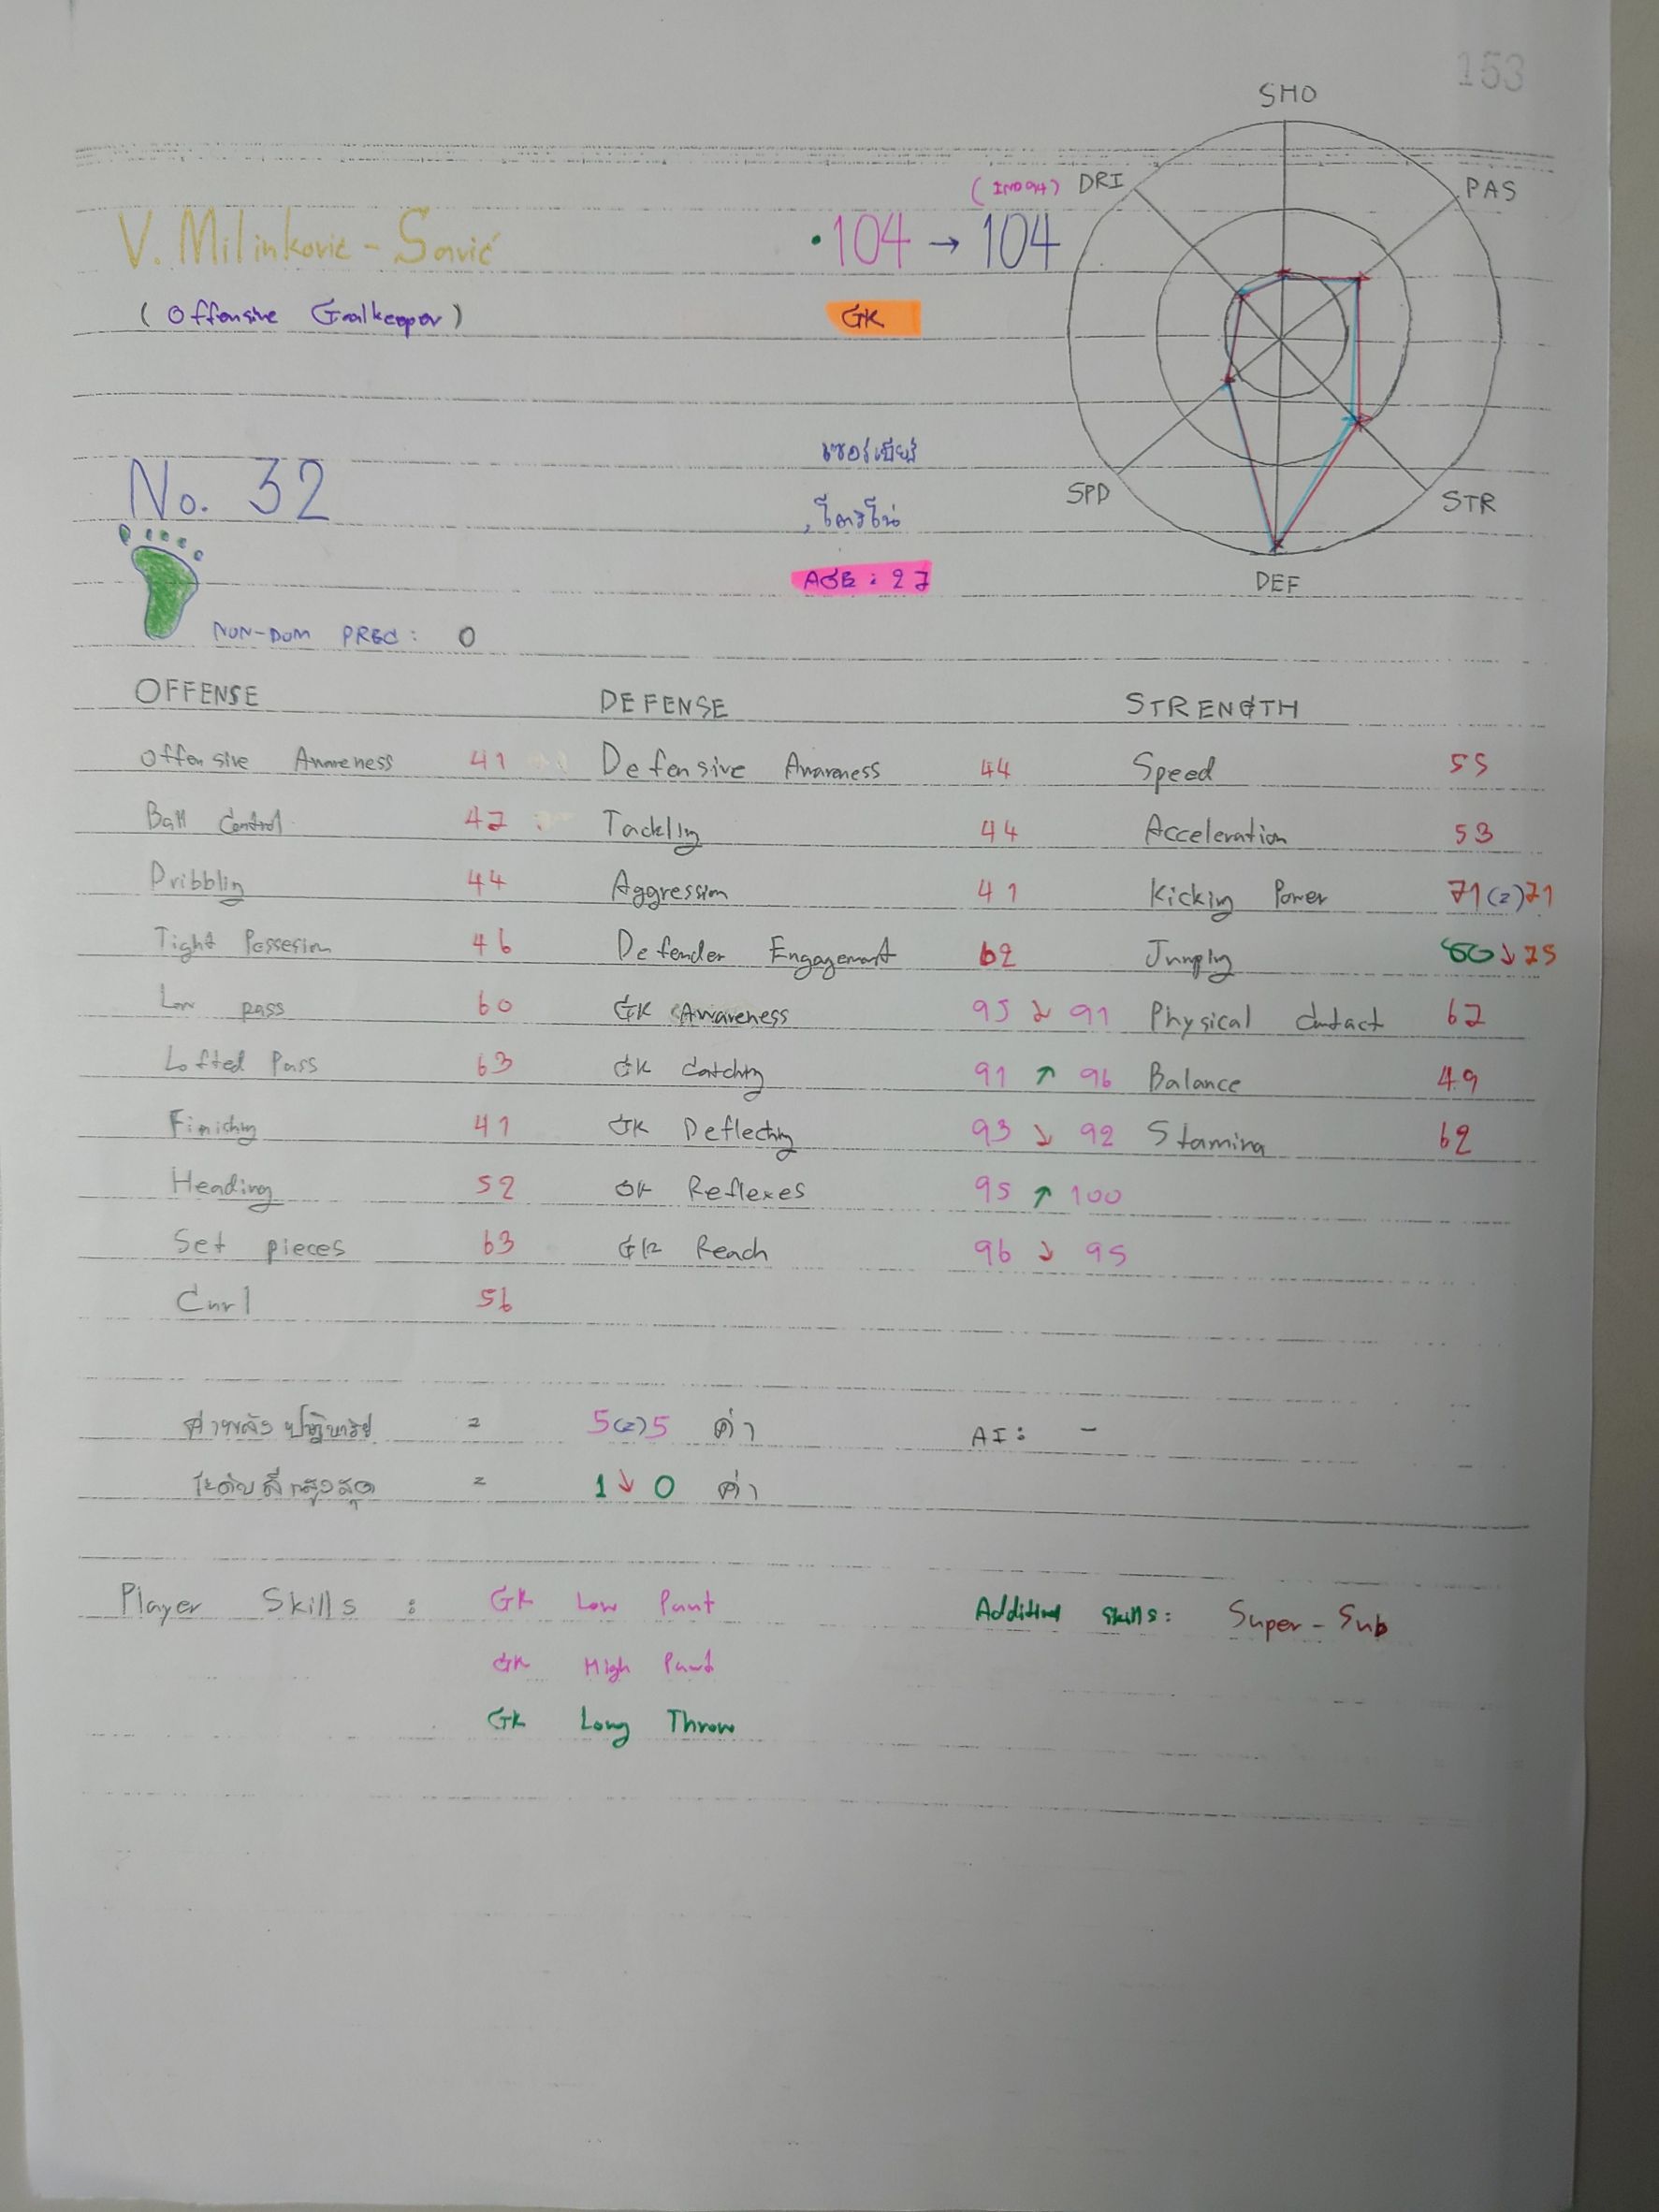 153
SHO
(IND 94) DRI PAS
V. Milinković - Savić • 104 → 104
(Offensive Goalkeeper) GK
เซอร์เบียร์
No. 32
SPD STR
, โตริโน่
AGE : 27 DEF
NON-DOM PREC : 0
OFFENSE DEFENSE STRENGTH
Offensive Awareness 41 Defensive Awareness 44 Speed 55
Ball Control 47 Tackling 44 Acceleration 53
Dribbling 44 Aggression 41 Kicking Power 71(=)71
Tight Possesion 46 Defender Engagement 62 Jumping 80 ↓ 75
Low pass 60 GK Awareness 95 ↓ 91 Physical Contact 67
Lofted Pass 63 GK Catching 91 ↑ 96 Balance 49
Finiching 41 GK Deflecting 93 ↓ 92 Stamina 62
Heading 52 GK Reflexes 95 ↑ 100
Set pieces 63 GK Reach 96 ↓ 95
Curl 56
ค่าพลังปาฏิหาริย์ = 5(=)5 ค่า AI: -
ระดับลึกสูงสุด = 1 ↓ 0 ค่า
Player Skills : GK Low Punt Additional Skills: Super-Sub
GK High Punt
GK Long Throw